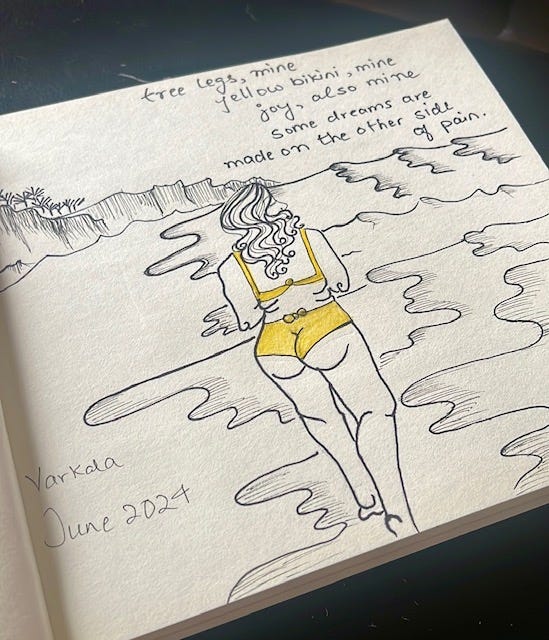 tree legs, mine
yellow bikini, mine
joy, also mine
some dreams are
made on the other side
of pain.
Varkala
June 2024